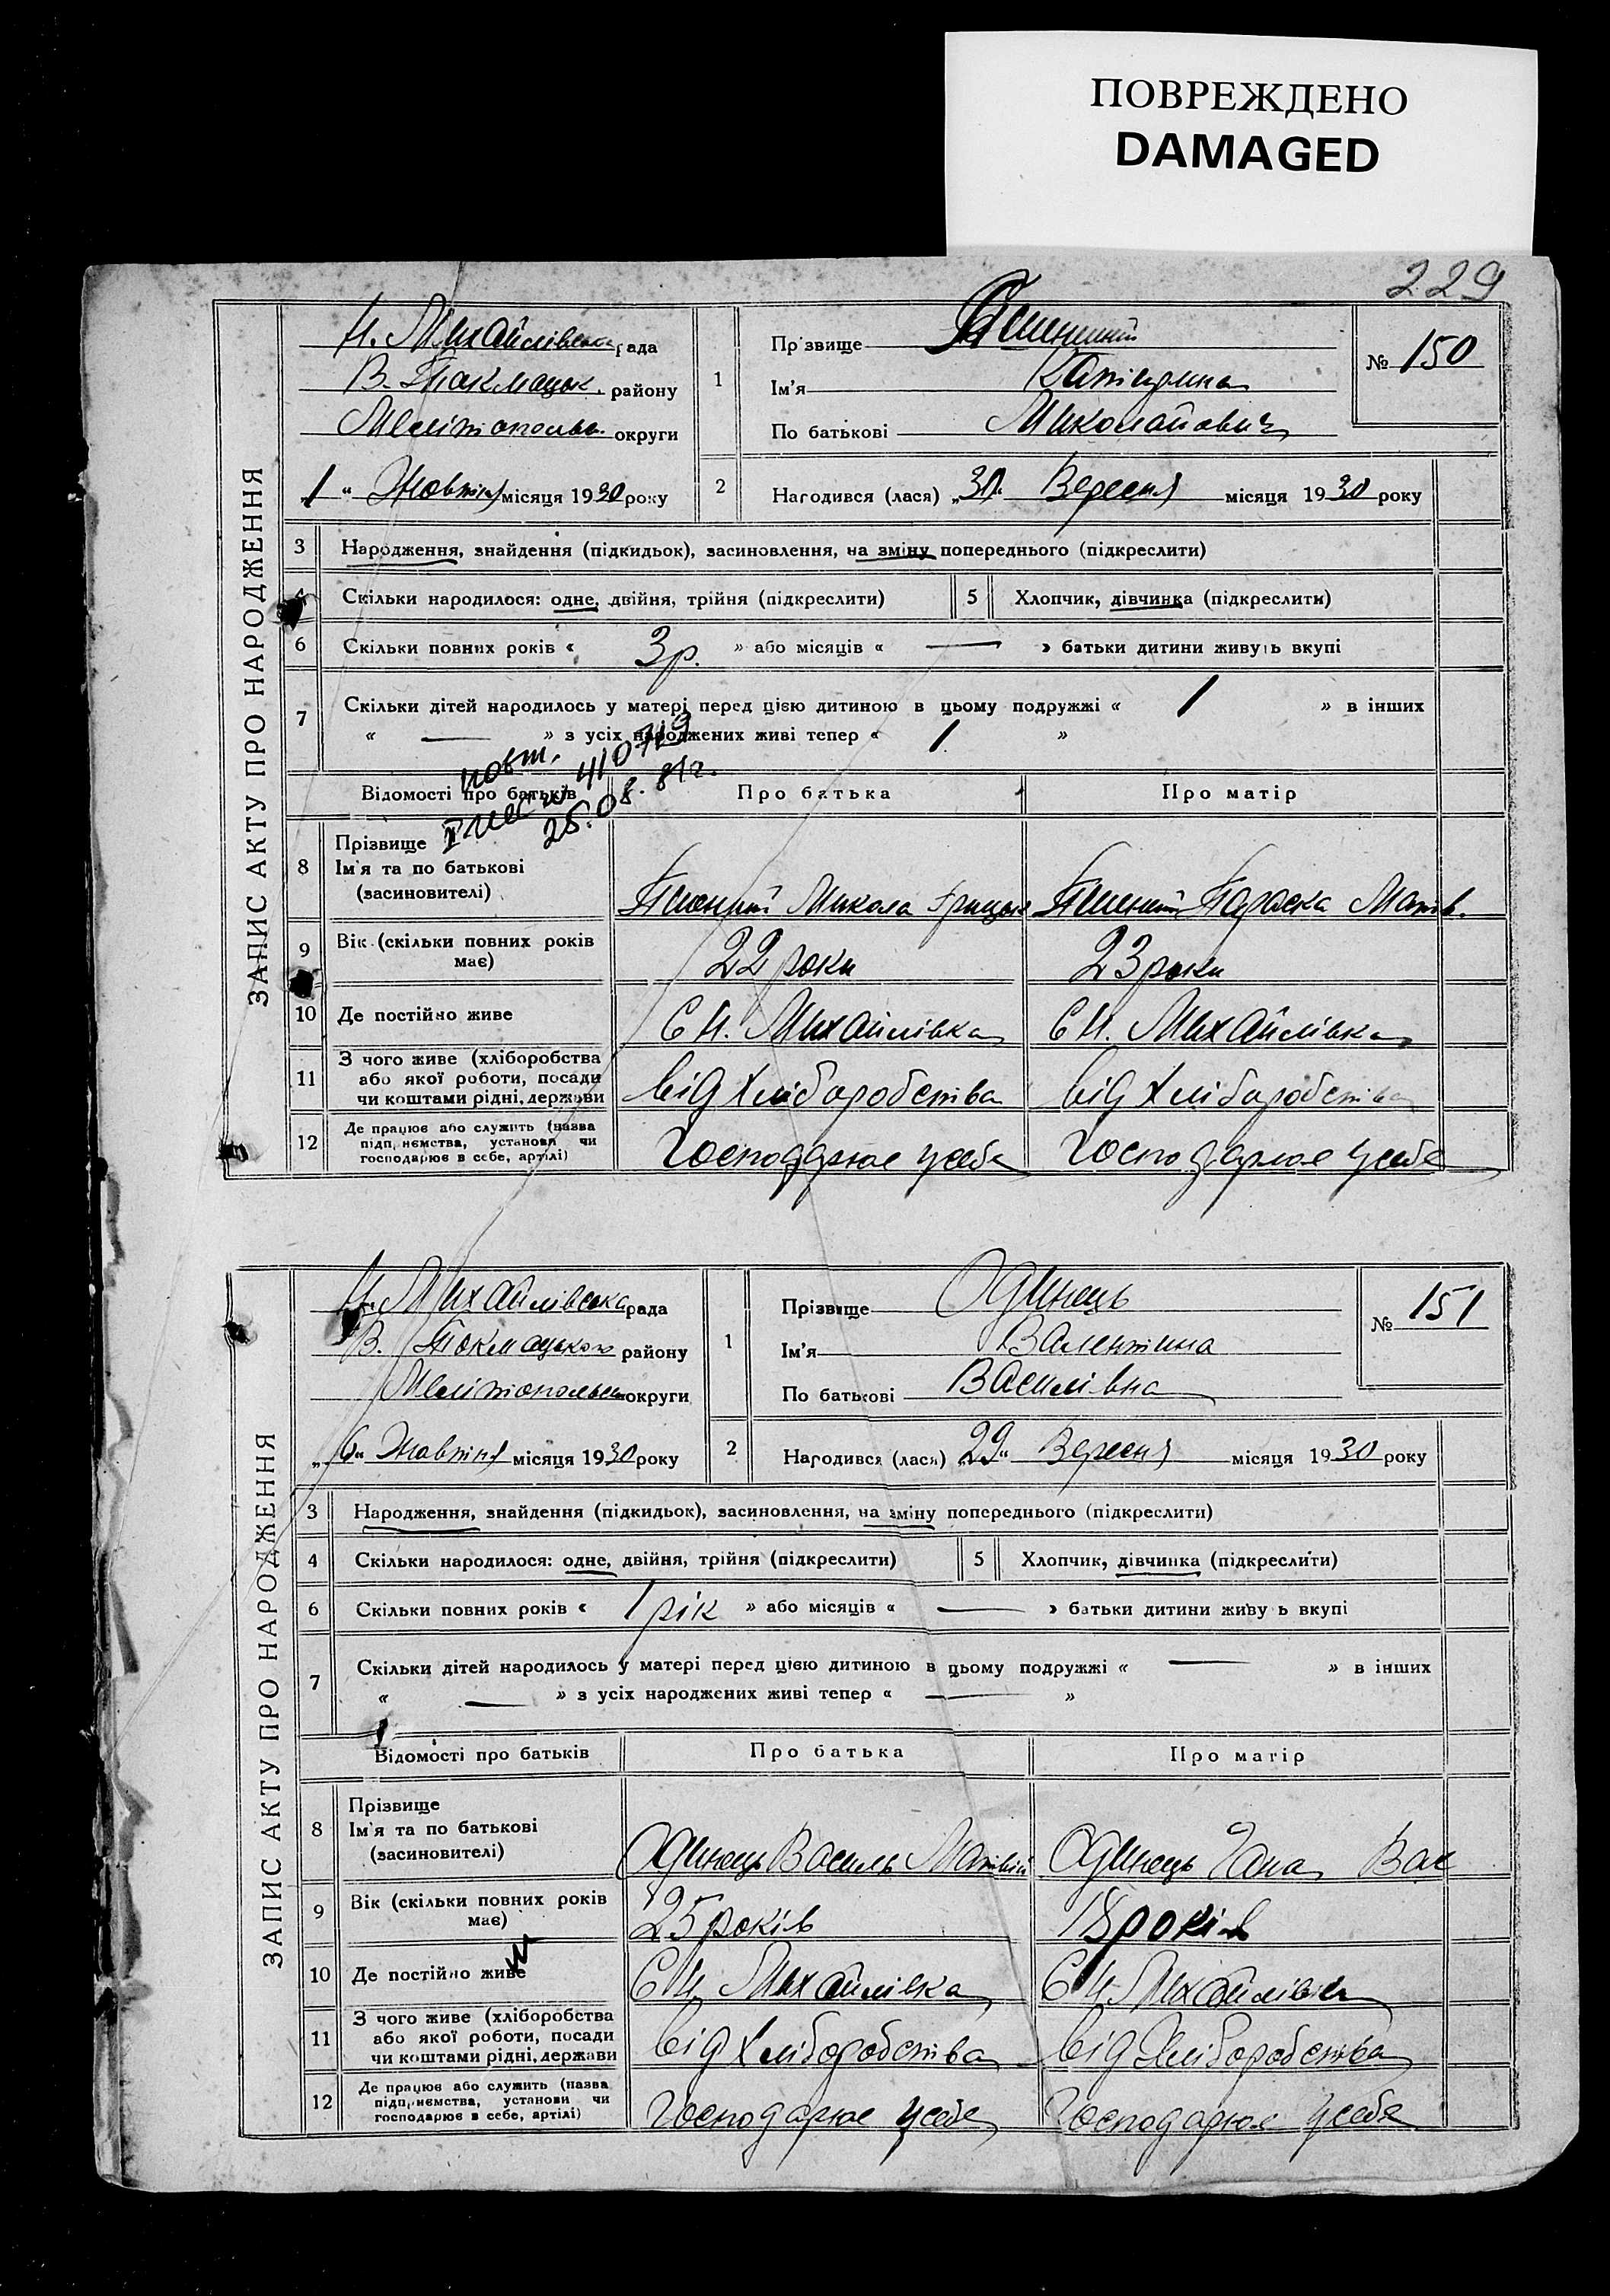 ПОВРЕЖДЕНО
DAMAGED
229
ЗАПИС АКТУ ПРО НАРОДЖЕННЯ
Н. Михайлівська рада
В. Токмацьк. району
Мелітопольськ. округи
„1“ Жовтня місяця 1930 року
1
Прізвище
Ім'я Катерина
По батькові Миколайович
№ 150
2 Народився (лася) „30. Вересня місяця 1930 року
3 Народження, знайдення (підкидьок), засиновлення, на зміну попереднього (підкреслити)
4 Скільки народилося: одне, двійня, трійня (підкреслити)
5 Хлопчик, дівчинка (підкреслити)
6 Скільки повних років « 3 р. » або місяців « — » батьки дитини живуть вкупі
7 Скільки дітей народилось у матері перед цією дитиною в цьому подружжі « 1 » в інших
« — » з усіх народжених живі тепер « 1 »
повт.
410719
25.08.81г.
Відомості про батьків
Про батька
Про матір
8 Прізвище
Ім'я та по батькові
(засиновителі)
Микола Грицьк
Параска Матв.
9 Вік (скільки повних років
має)
22 роки
23 роки
10 Де постійно живе
С Н. Михайлівка
С Н. Михайлівка
11 З чого живе (хліборобства
або якої роботи, посади
чи коштами рідні, держави
від хліборобства
від хліборобства
12 Де працює або служить (назва
підприємства, установи чи
господарює в себе, артілі)
Господарює у себе
Господарює у себе
ЗАПИС АКТУ ПРО НАРОДЖЕННЯ
Н. Михайлівська рада
В. Токмацького району
Мелітопольськ округи
„6“ Жовтня місяця 1930 року
1
Прізвище Одинець
Ім'я Валентина
По батькові Василівна
№ 151
2 Народився (лася) 29“ Вересня місяця 1930 року
3 Народження, знайдення (підкидьок), засиновлення, на зміну попереднього (підкреслити)
4 Скільки народилося: одне, двійня, трійня (підкреслити)
5 Хлопчик, дівчинка (підкреслити)
6 Скільки повних років « 1 рік » або місяців « — » батьки дитини живуть вкупі
7 Скільки дітей народилось у матері перед цією дитиною в цьому подружжі « — » в інших
« — » з усіх народжених живі тепер « — »
Відомості про батьків
Про батька
Про матір
8 Прізвище
Ім'я та по батькові
(засиновителі)
Одинець Василь Матвій
Одинець Гана Вас
9 Вік (скільки повних років
має)
25 років
18 років
10 Де постійно живе
С Н. Михайлівка
С Н. Михайлівка
11 З чого живе (хліборобства
або якої роботи, посади
чи коштами рідні, держави
від хліборобства
від хліборобства
12 Де працює або служить (назва
підприємства, установи чи
господарює в себе, артілі)
Господарює у себе
Господарює у себе